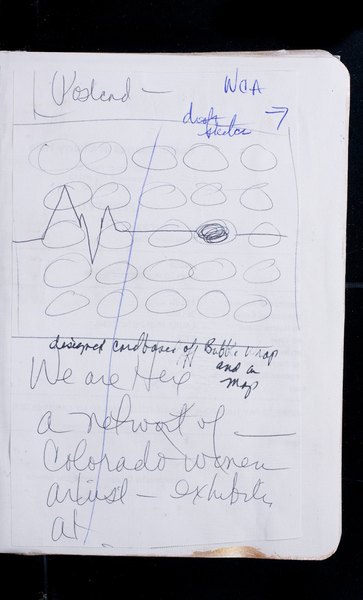 Postcard —
WCA
draft
sketch
designed card based off Bubble wrap
and a
map
We are Here
a network of —
Colorado women
artist — exhibits
at